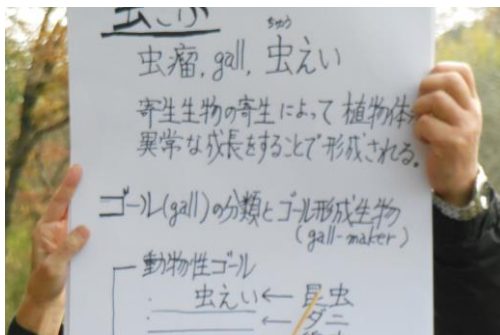 虫こぶ
虫瘤, gall, 虫えい
ちゅう
寄生生物の寄生によって植物体が
異常な成長をすることで形成される。
ゴール(gall)の分類とゴール形成生物
(gall-maker)
動物性ゴール
虫えい ← 昆虫
← ダニ